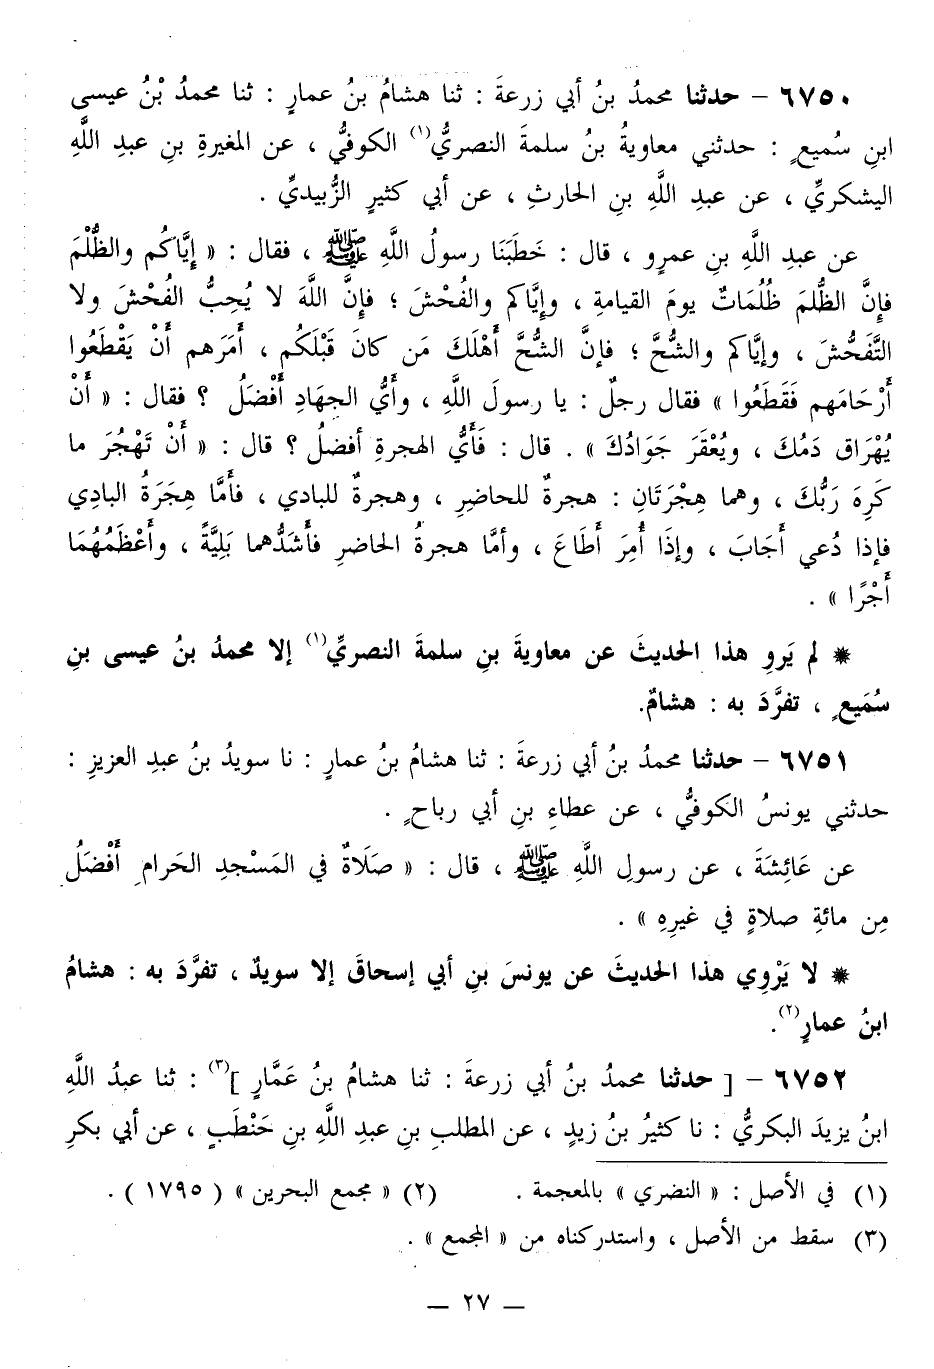 ٦٧٥٠ – حدثنا محمدُ بنُ أبي زرعةَ : ثنا هشامُ بنُ عمارٍ : ثنا محمدُ بْنُ عيسى
ابنِ سُميعٍ : حدثني معاويةُ بنُ سلمةَ النصريُّ(١) الكوفيُّ ، عن المغيرةِ بنِ عبدِ اللَّهِ
اليشكريِّ ، عن عبدِ اللَّهِ بنِ الحارثِ ، عن أبي كثيرٍ الزُّبيديِّ .
عن عبدِ اللَّهِ بنِ عمرٍو ، قال : خَطَبَنَا رسولُ اللَّهِ ﷺ ، فقال : « إِيَّاكُم والظُّلْمَ
فإنَّ الظُّلمَ ظُلُمَاتٌ يومَ القيامةِ ، وإِيَّاكم والفُحْشَ ؛ فإنَّ اللَّهَ لا يُحِبُّ الفُحْشَ ولا
التَّفَحُّشَ ، وإيَّاكم والشُّحَّ ؛ فإنَّ الشُّحَّ أَهْلَكَ مَن كانَ قَبْلَكُم ، أَمَرَهم أَنْ يَقْطَعُوا
أَرْحَامَهم فَقَطَعُوا » فقال رجلٌ : يا رسولَ اللَّهِ ، وأَيُّ الجهَادِ أَفْضَلُ ؟ فقال : « أَنْ
يُهْرَاق دَمُكَ ، ويُعْقَرَ جَوَادُكَ » . قال : فَأَيُّ الهجرةِ أفضلُ ؟ قال : « أَنْ تَهْجُرَ ما
كَرِهَ رَبُّكَ ، وهما هِجْرَتَانِ : هجرةٌ للحاضِرِ ، وهجرةٌ للبادي ، فأمَّا هِجَرَةُ البادِي
فإذا دُعي أَجَابَ ، وإذَا أُمِرَ أَطَاعَ ، وأمَّا هجرةُ الحاضرِ فأَشَدُّهما بَلِيَّةً ، وأَعْظَمُهُمَا
أَجْرًا » .
* لم يَروِ هذا الحديثَ عن معاويةَ بنِ سلمةَ النصريِّ(١) إلا محمدُ بنُ عيسى بنِ
سُمَيعٍ ، تفرَّدَ به : هشامٌ.
٦٧٥١ – حدثنا محمدُ بنُ أبي زرعةَ : ثنا هشامُ بنُ عمارٍ : نا سويدُ بنُ عبدِ العزيزِ :
حدثني يونسُ الكوفيُّ ، عن عطاءِ بنِ أبي رباحٍ .
عن عَائِشَةَ ، عن رسولِ اللَّهِ ﷺ ، قال : « صَلَاةٌ في المَسْجدِ الحَرامِ أَفْضَلُ
مِن مائةِ صلاةٍ في غيرِهِ » .
* لا يَرْوِي هذا الحديثَ عن يونسَ بنِ أبي إسحاقَ إلا سويدٌ ، تفرَّدَ به : هشامُ
ابنُ عمارٍ(٢).
٦٧٥٢ – [ حدثنا محمدُ بنُ أبي زرعةَ : ثنا هشامُ بنُ عَمَّارٍ ](٣) : ثنا عبدُ اللَّهِ
ابنُ يزيدَ البكريُّ : نا كثيرُ بنُ زيدٍ ، عن المطلبِ بنِ عبدِ اللَّهِ بنِ حَنْطَبٍ ، عن أبي بكرِ
(١) في الأصل : « النضري » بالمعجمة . (٢) « مجمع البحرين » ( ١٧٩٥ ) .
(٣) سقط من الأصل ، واستدركناه من « المجمع » .
— ٢٧ —